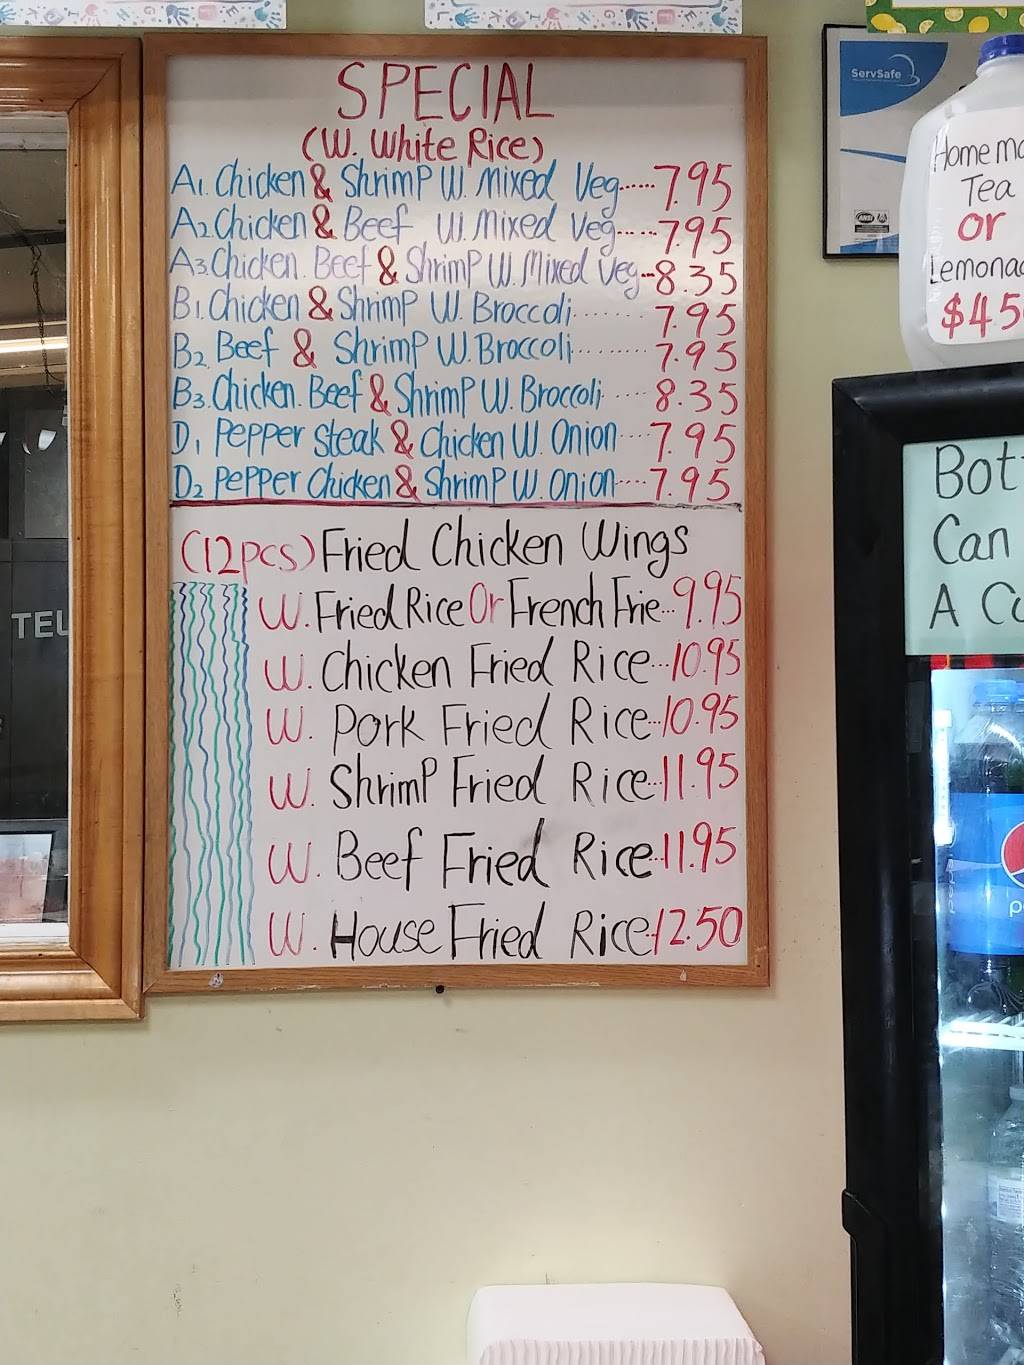 SPECIAL
(W. White Rice)
A1. Chicken & Shrimp W. Mixed Veg......7.95
A2 Chicken & Beef W. Mixed Veg.....7.95
A3. Chicken. Beef & Shrimp W. Mixed Veg--8.35
B1. Chicken & Shrimp W. Broccoli........7.95
B2. Beef & Shrimp W. Broccoli.........7.95
B3. Chicken. Beef & Shrimp W. Broccoli.....8.35
D1 Pepper Steak & Chicken W. Onion....7.95
D2 Pepper Chicken & Shrimp W. Onion....7.95
(12pcs) Fried Chicken Wings
W. Fried Rice Or French Frie...9.95
W. Chicken Fried Rice...10.95
W. Pork Fried Rice...10.95
W. Shrimp Fried Rice...11.95
W. Beef Fried Rice...11.95
W. House Fried Rice..12.50
ServSafe
Home
Tea
or
$4.5
Can
A
TEL